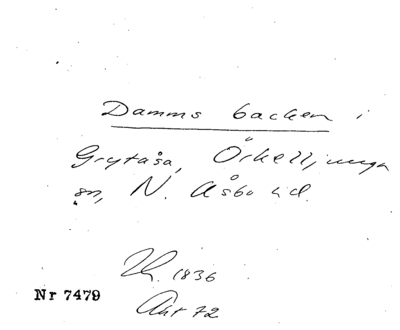 Damms backen i
Grytåsa, Örkelljunga
sn, N. Åsbo hd.
1836
Nr 7479
Akt 72